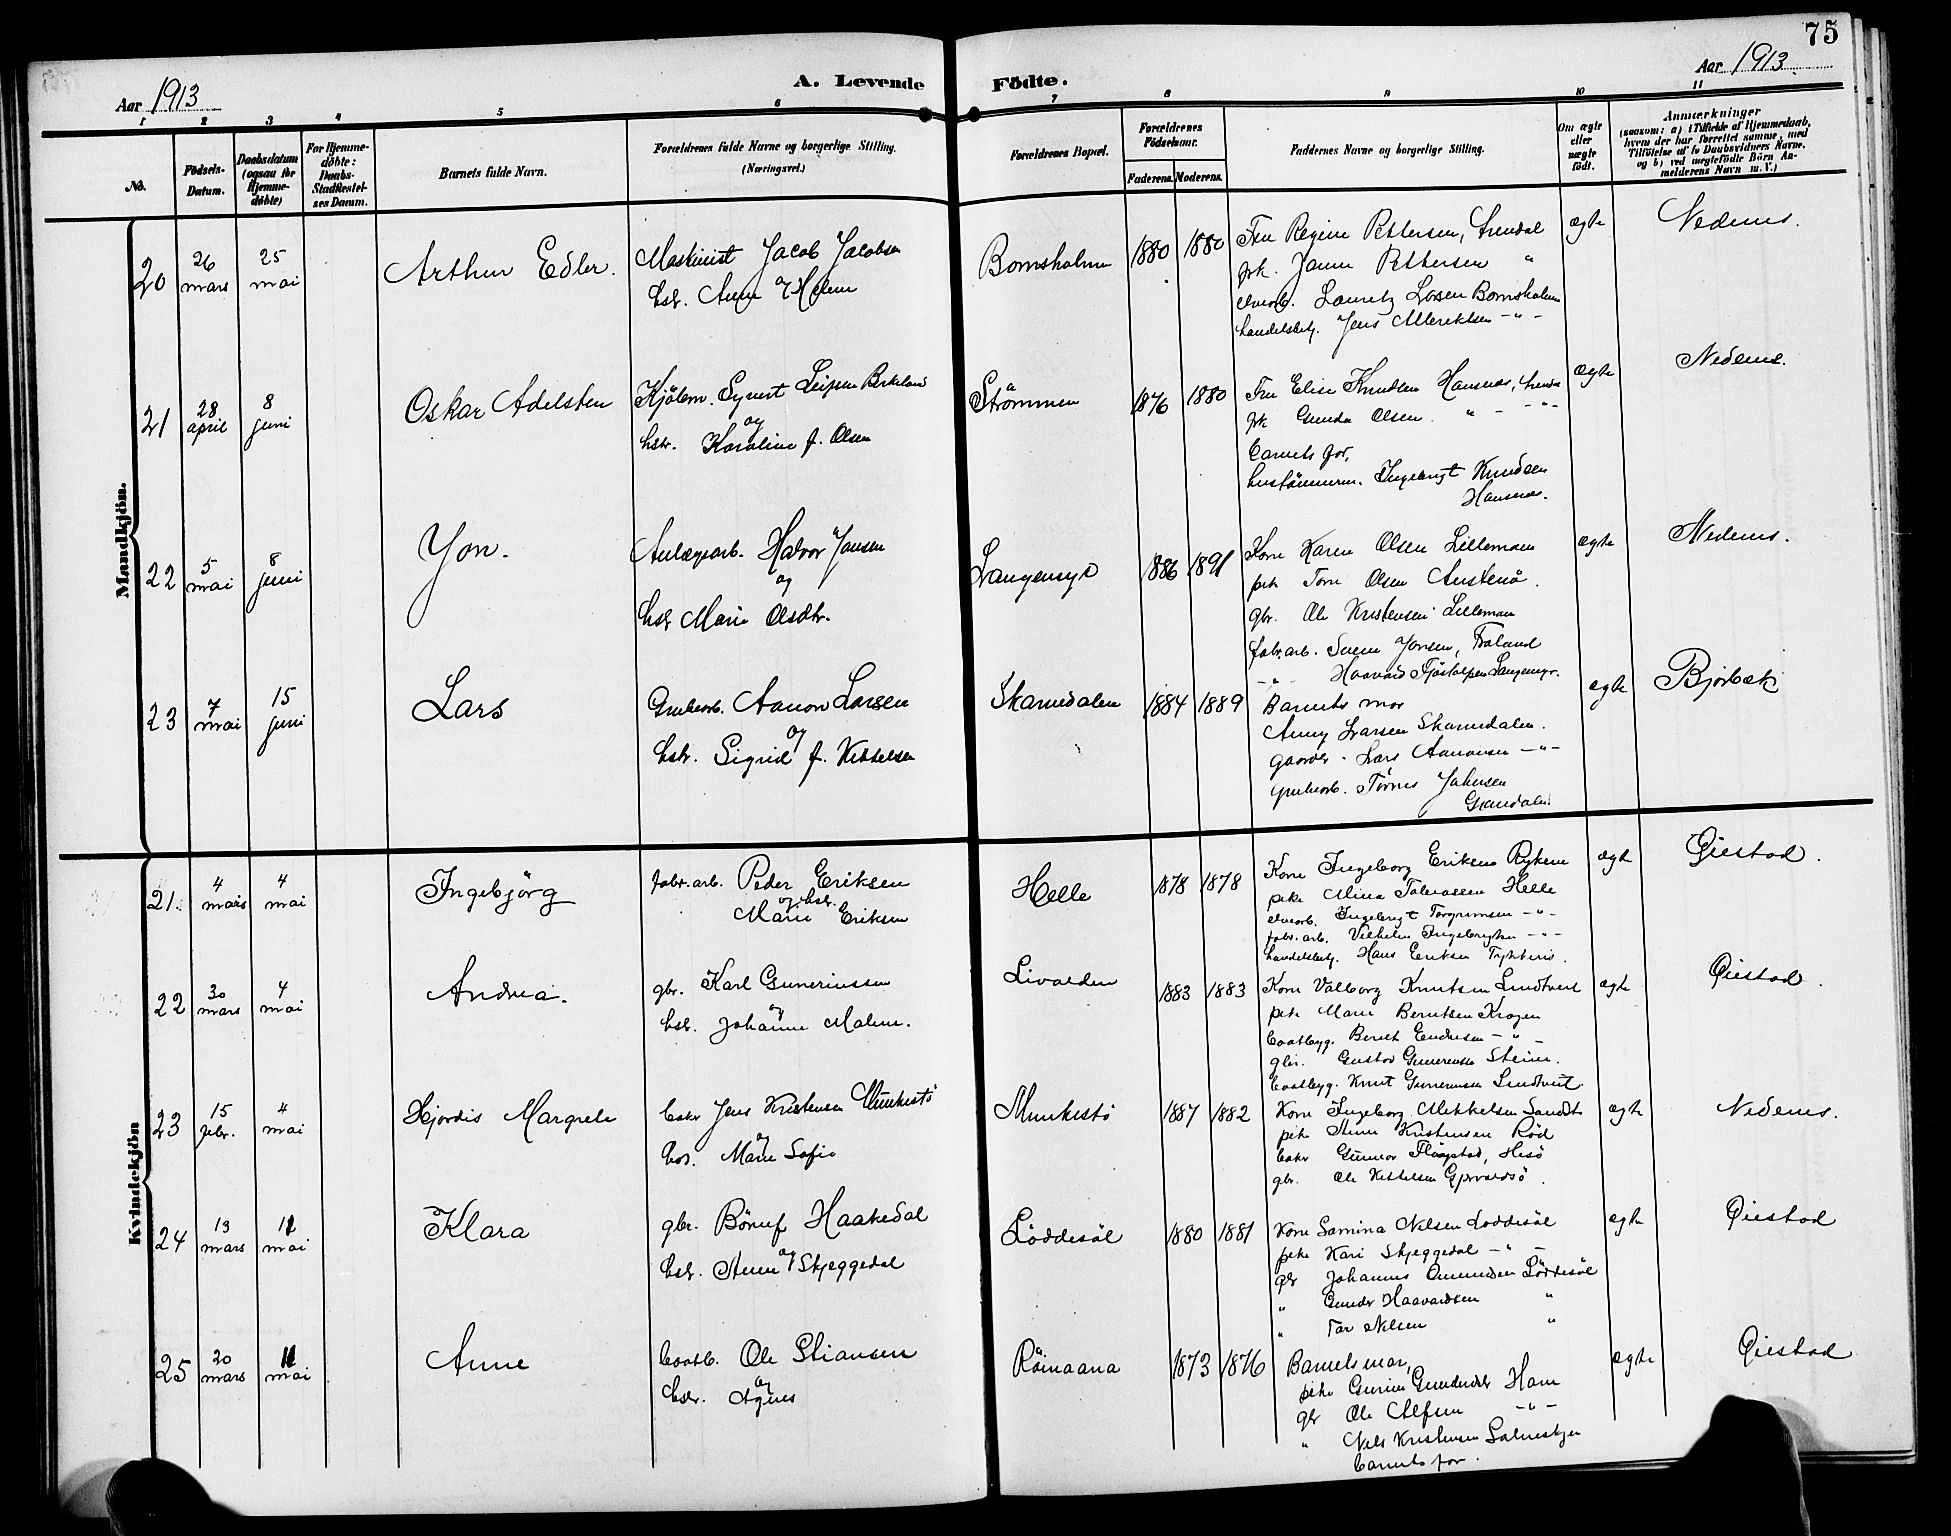 75
Aar 1913
A. Levende
Födte.
Aar 1913.
1 2 3 4 5 6 7 8 9 10 11
No.
Födsels-
Datum.
Daabsdatum
(ogsaa for
Hjemme-
döbte)
For Hjemme-
döbte:
Daabs-
Stadfæstel-
ses Datum.
Barnets fulde Navn.
Forældrenes fulde Navne og borgerlige Stilling.
(Næringsvei.)
Forældrenes Bopæl.
Forældrenes
Födselsaar.
Faderens. Moderens.
Faddernes Navne og borgerlige Stilling.
Om ægte
eller
uægte
födt.
Anmærkninger
(saasom: a) i Tilfælde af Hjemmedaab,
hvem der har forrettet samme, med
Tilföielse af to Daabsvidners Navne.
og b) ved uægtefödte Börn An-
melderens Navn m. V.)
Mandkjön.
20
26
mars
25
mai
Arthur Edler.
Maskinist Jacob Jacobsen
og
hstr. Anna Helene
Bomsholmen
1880 1880
Fru Regine Pettersen, Arendal
prk. Janna Pettersen "
elverb. Lauretz Larsen Bomsholmen
handelsbetj. Jens Albrektsen - " -
ægte
Nedenes.
21
28
april
8
juni
Oskar Adelsten
Kjölem. Syvert Leifsen Birkeland
og
hstr. Karoline f. Olsen
Strömmen
1876 1880
Fru Elise Knudsen Hansnes,
prk Gunda Olsen. " - - " -
barnets far,
Ingebrigt Knudsen
Hansnes.
ægte
Nedenes.
22
5
mai
8
juni
Jon.
Anlægsarb. Halvor Jonsen
og
hstr Marie Olsdtr.
Langemyr
1886 1891
Kone Karen Olsen Lillemoen
pike Tone Olsen Austenå.
gbr. Ole Kristensen Lillemoen
fabr.arb. Svenn Jonsen, Froland
- " - Haavard Langemyr.
ægte
Nedenes.
23
7
mai
15
juni
Lars
Grubearb. Aanon Larsen
og
hstr. Sigrid f. Kittelsen
Skarvedalen
1884 1889
Barnets mor
Anny Larsen Skarvedalen.
gaardbr. Lars Aanonsen - " -
grubearb. Tönnes Jakobsen
Grandalen.
ægte
Bjorbæk
Kvindekjön
21.
4
mars
4
mai
Ingebjörg
fabr.arb. Peder Eriksen
og hstr.
Marie Eriksen
Helle
1878 1878
Kone Ingeborg Eriksen Rykene
pike Mina Tobiassen Helle
elverb. Ingebrigt Torgrimsen - " -
fabr.arb. Vilhelm Ingebrigtsen - " -
handelsbetj. Hans Eriksen
ægte
Öiestad.
22
30
mars
4
mai
Andrea.
gbr. Karl Guneriussen
og
hstr. Johanne Malene.
Livolden
1883 1883
Kone Valborg Knutsen Lindtveit
pike Marie Berntsen Krogen
baatbyg. Bernt Endresen - " -
gbr. Gustav Gunerinssen Steine.
baatbyg. Knut Gunerinssen Lindtveit.
ægte
Öiestad.
23
15
febr.
4
mai
Hjördis Margrete
baker Jens Kristensen Munkestö
og
hus. Marie Sofie
Munkestö
1887 1882
Kone Ingeborg Mikkelsen
pike Anna Kristensen Röd
baker Gunnar Flöystad, Hisö
gbr. Ole Kittelsen
ægte
Nedenes.
24
13
mars
11
mai
Klara
gbr. Böruf Haakedal
og
hstr. Anne Skjeggedal
Löddesöl
1880 1881
Kone Samina Nilsen Löddesöl
pike Kari Skjeggedal - " -
gbr Johannes Omundsen Löddesöl
" Gunder Haavardsen "
" Tor Nilsen "
ægte
Öiestad
25
20
mars
11
mai
Anne
baatb. Ole Stiansen
og
hstr. Agnes
Röinaana
1873 1876
Barnets mor,
pike Gurine Gundersdtr Ham
gbr Ole Alfsen - " -
" Nils Kristensen
barnets far.
ægte
Öiestad